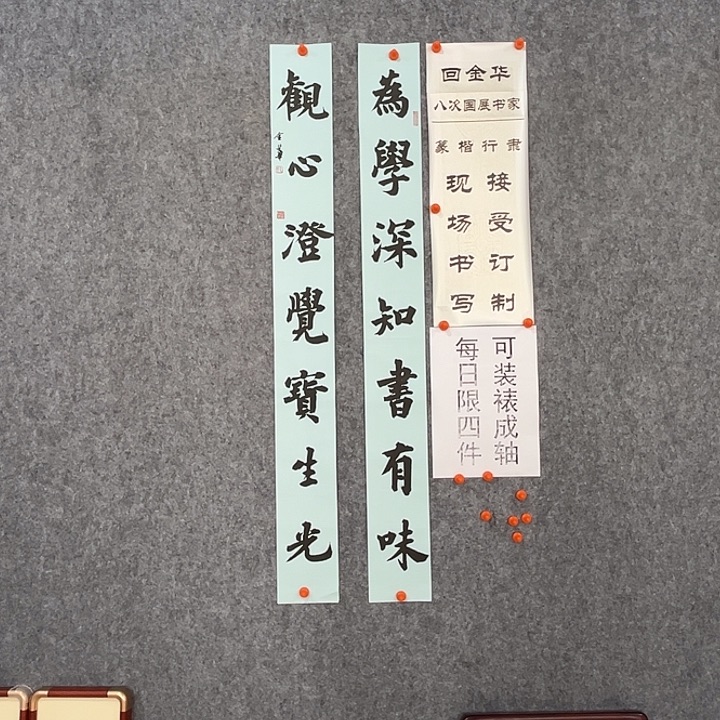 為學深知書有味
觀心澄覺寶生光
金华
回金华
八次国展书家
篆楷行隶
接受订制
现场书写
可装裱成轴
每日限四件